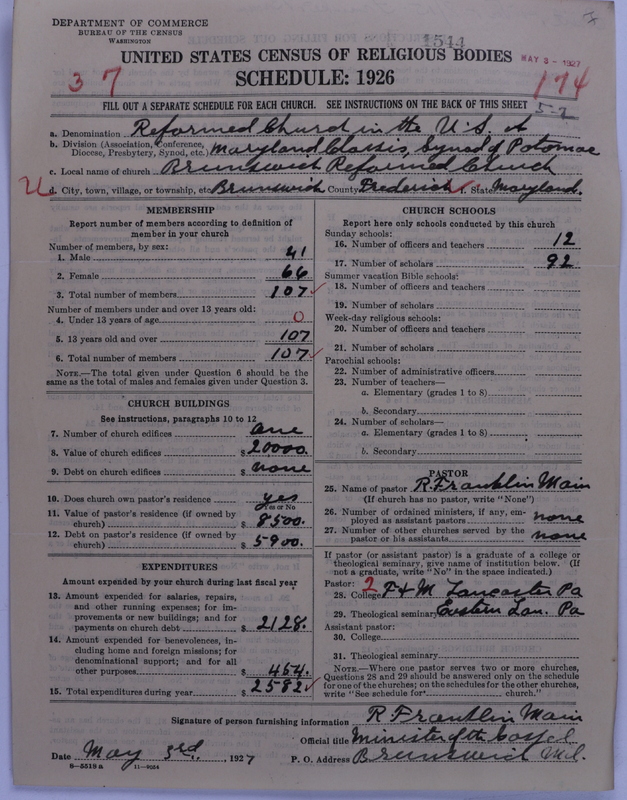 DEPARTMENT OF COMMERCE
BUREAU OF THE CENSUS
WASHINGTON
1544
UNITED STATES CENSUS OF RELIGIOUS BODIES
MAY 3 - 1927
SCHEDULE: 1926
3 7
174
FILL OUT A SEPARATE SCHEDULE FOR EACH CHURCH. SEE INSTRUCTIONS ON THE BACK OF THIS SHEET
5-2
a. Denomination Reformed Church in the U.S. A
b. Division (Association, Conference, Diocese, Presbytery, Synod, etc.) Maryland Classis, Synod of Potomac
c. Local name of church Brunswick Reformed Church
d. City, town, village, or township, etc. Brunswick County Frederick f. State Maryland.
MEMBERSHIP
Report number of members according to definition of
member in your church
Number of members, by sex:
1. Male 41
2. Female 66
3. Total number of members 107
Number of members under and over 13 years old:
4. Under 13 years of age 0
5. 13 years old and over 107
6. Total number of members 107
NOTE.—The total given under Question 6 should be the
same as the total of males and females given under Question 3.
CHURCH BUILDINGS
See instructions, paragraphs 10 to 12
7. Number of church edifices one
8. Value of church edifices $ 20000.
9. Debt on church edifices $ none
10. Does church own pastor's residence yes
Yes or No
11. Value of pastor's residence (if owned by
church) $ 8500.
12. Debt on pastor's residence (if owned by
church) $ 5900.
EXPENDITURES
Amount expended by your church during last fiscal year
13. Amount expended for salaries, repairs,
and other running expenses; for im-
provements or new buildings; and for
payments on church debt $ 2128.
14. Amount expended for benevolences, in-
cluding home and foreign missions; for
denominational support; and for all
other purposes $ 454.
15. Total expenditures during year $ 2582
CHURCH SCHOOLS
Report here only schools conducted by this church
Sunday schools:
16. Number of officers and teachers 12
17. Number of scholars 92
Summer vacation Bible schools:
18. Number of officers and teachers
19. Number of scholars
Week-day religious schools:
20. Number of officers and teachers
21. Number of scholars
Parochial schools:
22. Number of administrative officers
23. Number of teachers—
a. Elementary (grades 1 to 8)
b. Secondary
24. Number of scholars—
a. Elementary (grades 1 to 8)
b. Secondary
PASTOR
25. Name of pastor R Franklin Main
(If church has no pastor, write "None")
26. Number of ordained ministers, if any, em-
ployed as assistant pastors none
27. Number of other churches served by the
pastor or his assistants none
If pastor (or assistant pastor) is a graduate of a college or
theological seminary, give name of institution below. (If
not a graduate, write "No" in the space indicated.)
Pastor: 2
28. College F & M Lancaster Pa
29. Theological seminary Eastern Lan. Pa
Assistant pastor:
30. College
31. Theological seminary
NOTE.—Where one pastor serves two or more churches,
Questions 28 and 29 should be answered only on the schedule
for one of the churches; on the schedules for the other churches,
write "See schedule for church."
Signature of person furnishing information R Franklin Main
Official title Minister of the Gospel
Date May 3rd, 1927 P. O. Address Brunswick Md.
8-5518 a 11-9024